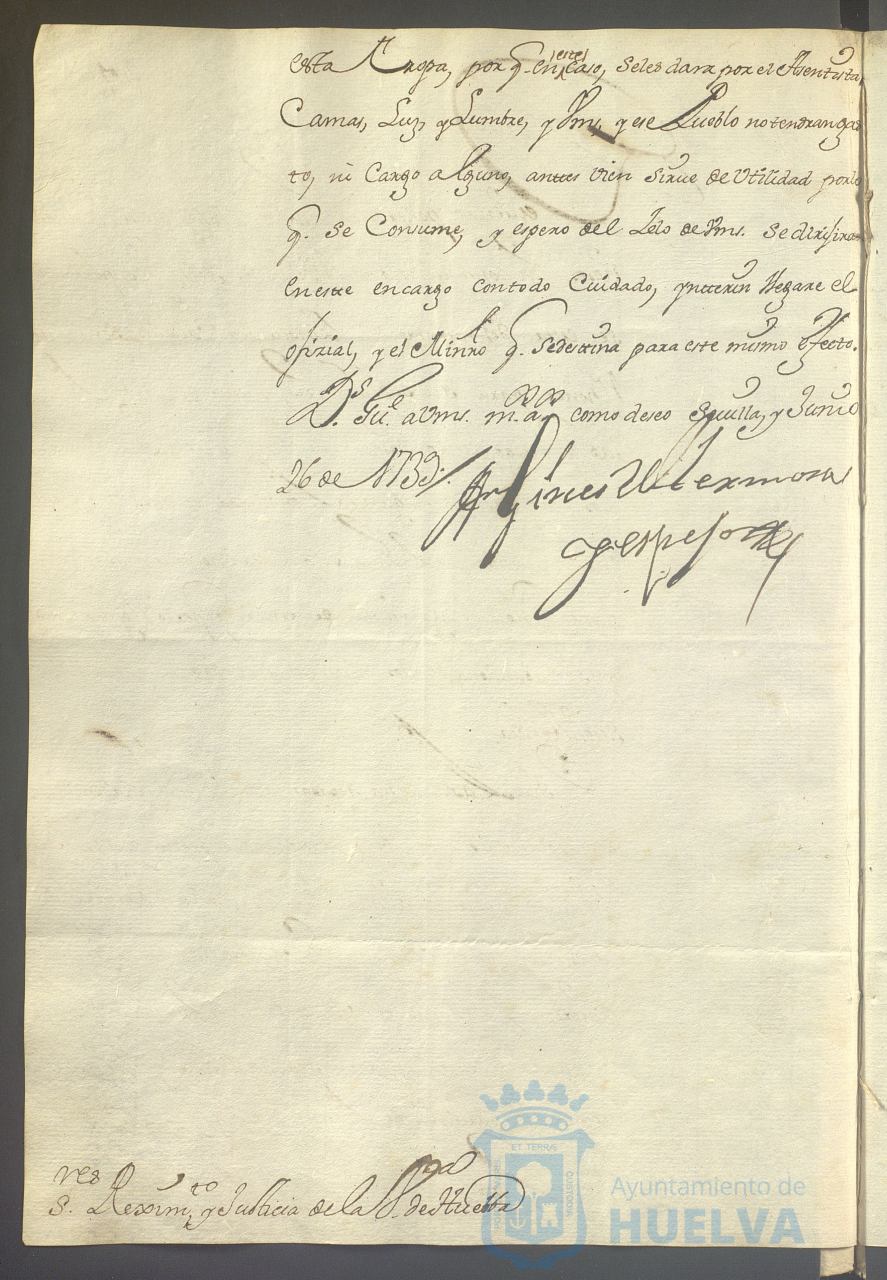 esta Tropa, por q. en este caso, seles dara por el Asentista
Camas, Luz, y Lumbre, y Vms, y ese Pueblo no tendran gas
to, ni Cargo alguno, antes vien sirve de Utilidad por lo
q. se Consume, y espero del Zelo de Vms. se dirijira
en este encargo con todo Cuidado, ynterin llegare el
ofizial, y el Minro q. se destina para este mismo efecto.
Ds. Gue. a Vms. m. a. como deseo Sevilla, y Junio
26 de 1733.
Gines de Hermosa
y espejo
res
S. Reximto. y Justicia de la Va. de Huelba
ET TERRÆ
CUSTODIA
Ayuntamiento de
HUELVA